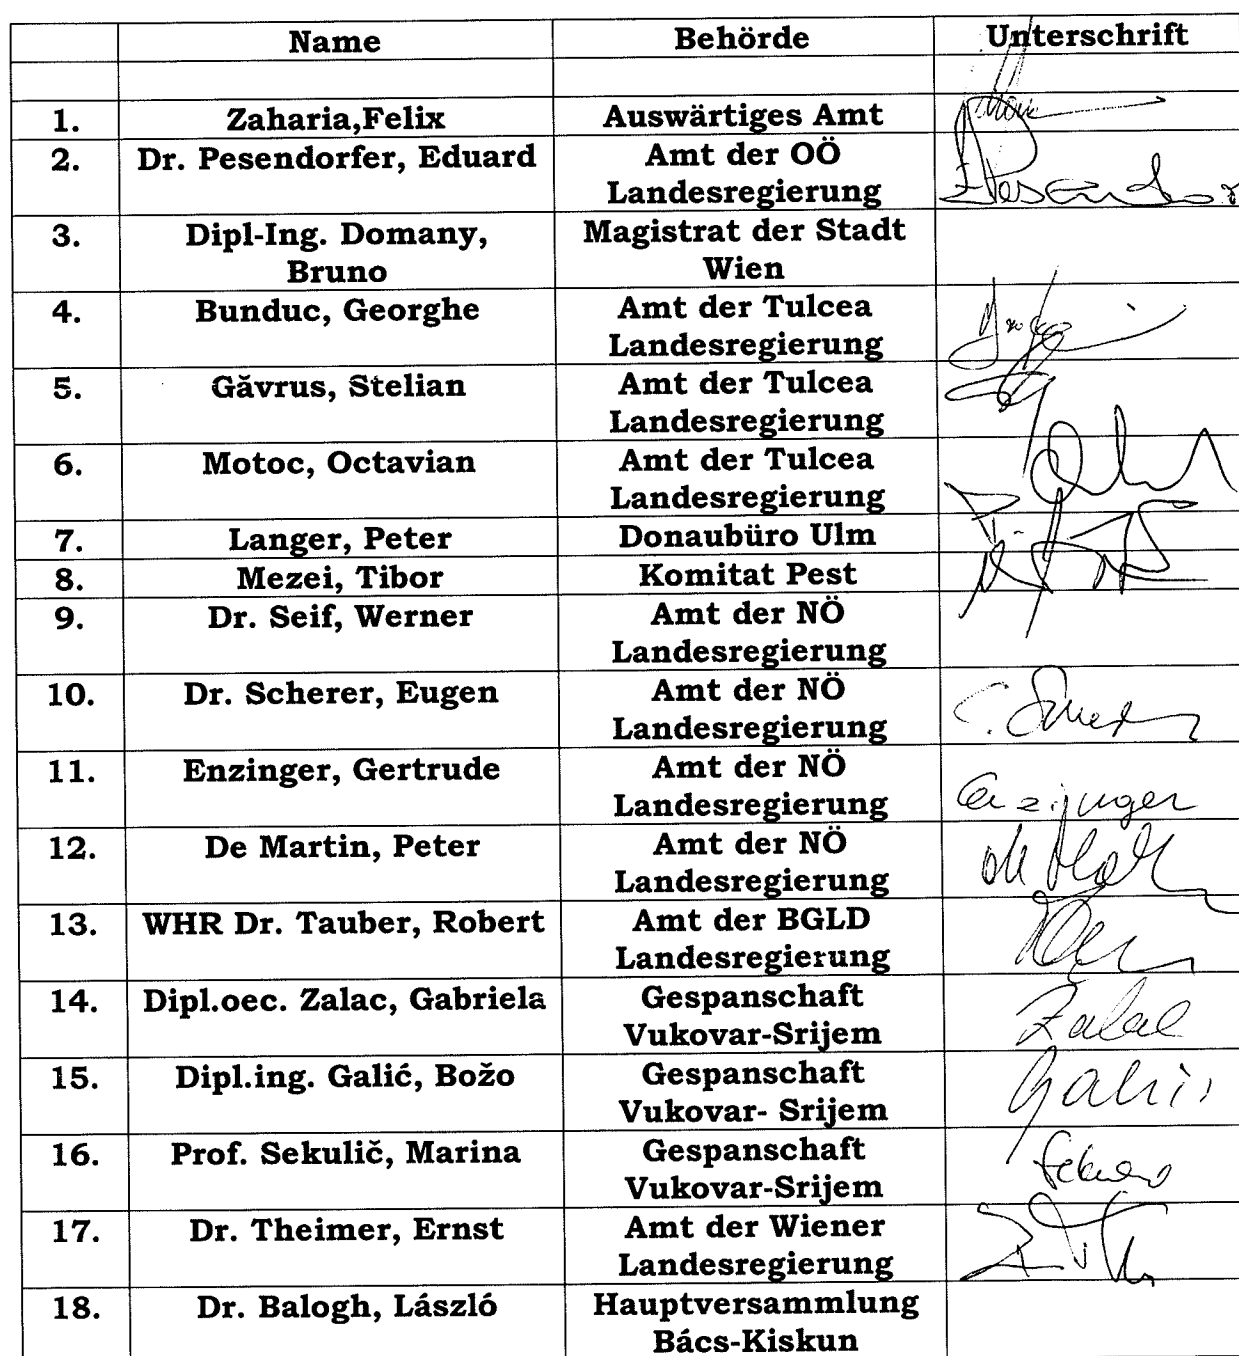 Name Behörde Unterschrift
1. Zaharia,Felix Auswärtiges Amt
2. Dr. Pesendorfer, Eduard Amt der OÖ
Landesregierung
3. Dipl-Ing. Domany, Magistrat der Stadt
Bruno Wien
4. Bunduc, Georghe Amt der Tulcea
Landesregierung
5. Găvrus, Stelian Amt der Tulcea
Landesregierung
6. Motoc, Octavian Amt der Tulcea
Landesregierung
7. Langer, Peter Donaubüro Ulm
8. Mezei, Tibor Komitat Pest
9. Dr. Seif, Werner Amt der NÖ
Landesregierung
10. Dr. Scherer, Eugen Amt der NÖ
Landesregierung
11. Enzinger, Gertrude Amt der NÖ
Landesregierung Enzinger
12. De Martin, Peter Amt der NÖ
Landesregierung
13. WHR Dr. Tauber, Robert Amt der BGLD
Landesregierung
14. Dipl.oec. Zalac, Gabriela Gespanschaft
Vukovar-Srijem Zalac
15. Dipl.ing. Galić, Božo Gespanschaft
Vukovar- Srijem Galić
16. Prof. Sekulič, Marina Gespanschaft
Vukovar-Srijem
17. Dr. Theimer, Ernst Amt der Wiener
Landesregierung
18. Dr. Balogh, László Hauptversammlung
Bács-Kiskun